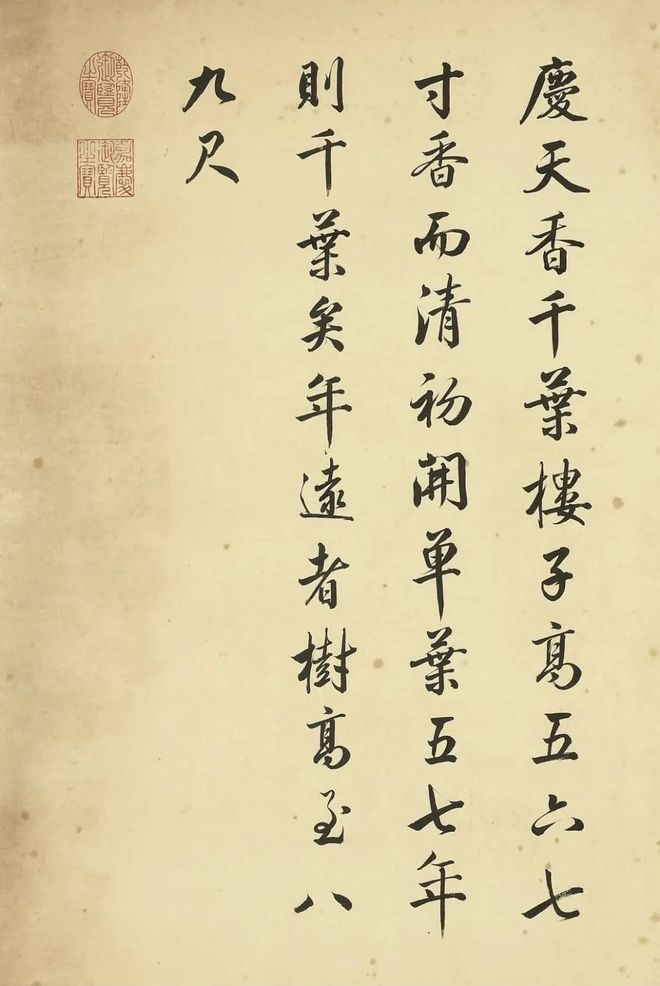 慶天香千葉樓子髙五六七
寸香而清初開单葉五七年
則千葉矣年遠者樹髙至八
九尺
乾隆御覽之寶
嘉慶御覽之寶